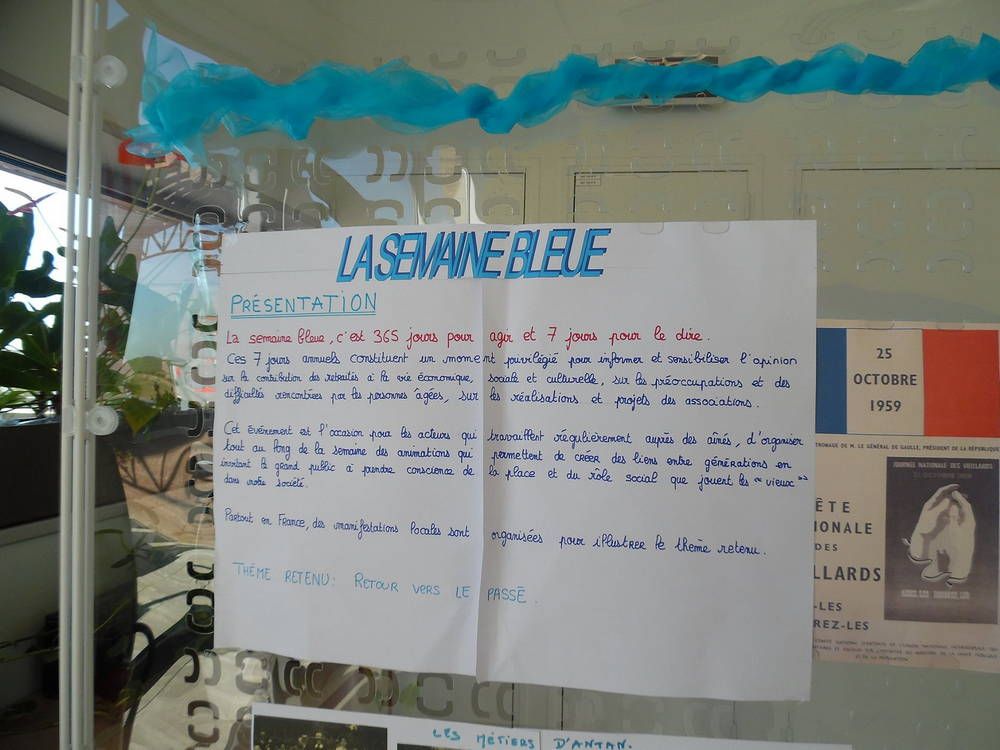 LA SEMAINE BLEUE
PRÉSENTATION
La semaine bleue, c'est 365 jours pour agir et 7 jours pour le dire.
Ces 7 jours annuels constituent un moment privilégié pour informer et sensibiliser l'opinion
sur la contribution des retraités à la vie économique, sociale et culturelle, sur les préoccupations et des
difficultés rencontrées par les personnes âgées, sur les réalisations et projets des associations.
Cet évènement est l'occasion pour les acteurs qui travaillent régulièrement auprès des aînés, d'organiser
tout au long de la semaine des animations qui permettent de créer des liens entre générations en
invitant le grand public à prendre conscience de la place et du rôle social que jouent les "vieux"
dans notre société.
Partout en France, des manifestations locales sont organisées pour illustrer le thème retenu.
THÈME RETENU: RETOUR VERS LE PASSÉ.
25
OCTOBRE
1959
TRONAGE DE M. LE GÉNÉRAL DE GAULLE, PRÉSIDENT DE LA RÉPUBLIQUE
JOURNÉE NATIONALE DES VIEILLARDS
ÊTE
IONALE
DES
LLARDS
-LES
REZ-LES
LES MÉTIERS D'ANTAN.